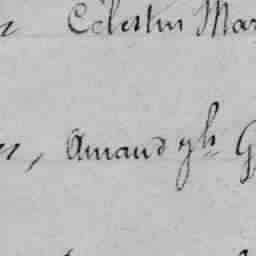 Célestin Mar
Amand gh G